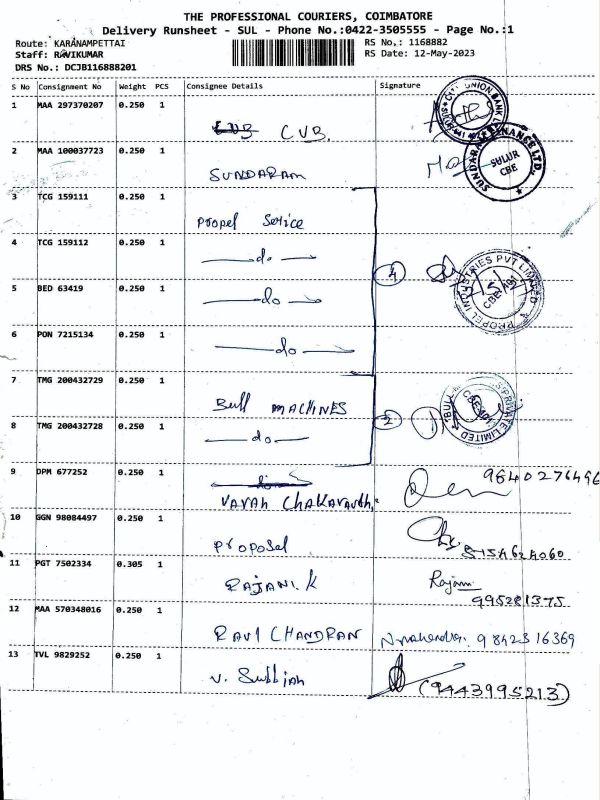 THE PROFESSIONAL COURIERS, COIMBATORE
Delivery Runsheet - SUL - Phone No.:0422-3505555 - Page No.:1
Route: KARANAMPETTAI RS No.: 1168882
Staff: RAVIKUMAR RS Date: 12-May-2023
DRS No.: DCJB116888201
S No Consignment No Weight PCS Consignee Details Signature
1 MAA 297370207 0.250 1 CUB
2 MAA 100037723 0.250 1 SUNDARAM
SUNDARAM FINANCE LTD. SULUR CBE
3 TCG 159111 0.250 1 Propel Service
4 TCG 159112 0.250 1 do 4
PROPEL INDUSTRIES PVT LIMITED
5 BED 63419 0.250 1 do
6 PON 7215134 0.250 1 do
7 TMG 200432729 0.250 1 Bull MACHINES
8 TMG 200432728 0.250 1 do 2
9 DPM 677252 0.250 1
10 GGN 98084497 0.250 1 Proposal
11 PGT 7502334 0.305 1 RAJANI.K Rajani
995281375
12 MAA 570348016 0.250 1 RAVI CHANDRAN 9842316369
13 TVL 9829252 0.250 1 (9443995213)